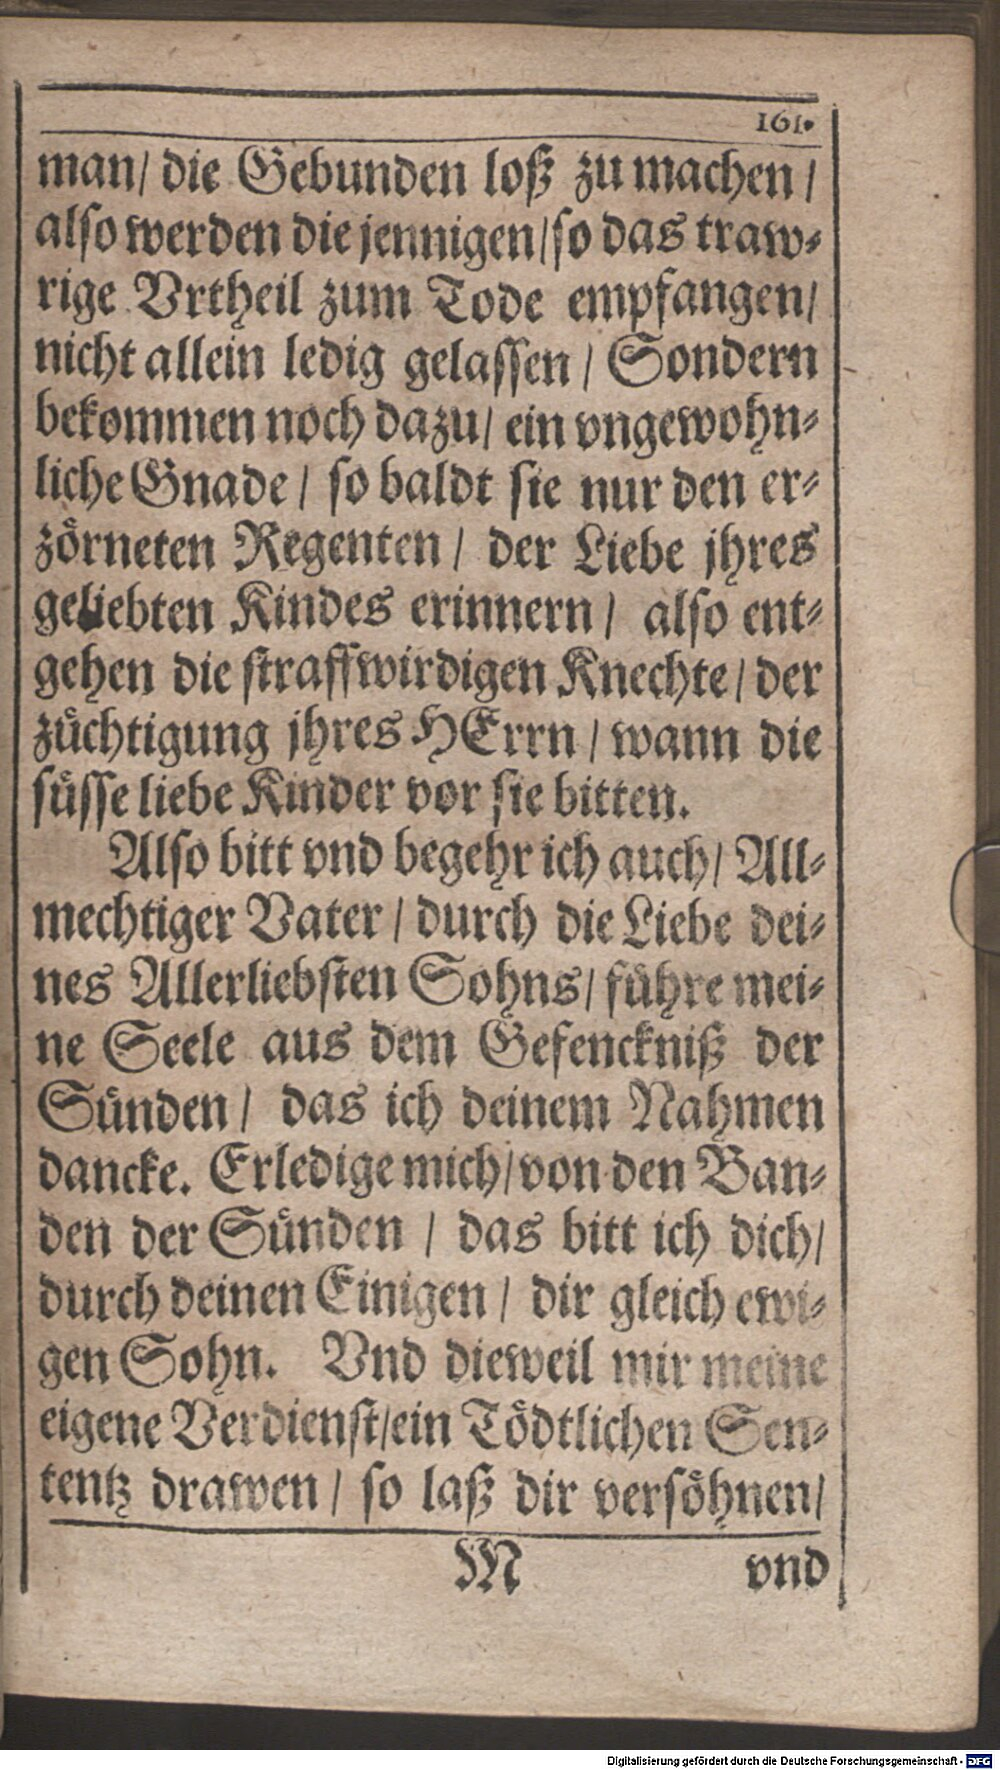 161.
man/ die Gebunden loß zu machen /
also werden die jennigen/so das traw-
rige Vrtheil zum Tode empfangen/
nicht allein ledig gelassen / Sondern
bekommen noch dazu/ ein vngewohn-
liche Gnade / so baldt sie nur den er-
zörneten Regenten / der Liebe jhres
geliebten Kindes erinnern / also ent-
gehen die straffwirdigen Knechte / der
züchtigung jhres HErrn / wann die
süsse liebe Kinder vor sie bitten.
Also bitt vnd begehr ich auch/ All-
mechtiger Vater / durch die Liebe dei-
nes Allerliebsten Sohns/ führe mei-
ne Seele aus dem Gefenckniß der
Sünden / das ich deinem Nahmen
dancke. Erledige mich/von den Ban-
den der Sünden / das bitt ich dich/
durch deinen Einigen / dir gleich ewi-
gen Sohn. Vnd dieweil mir meine
eigene Verdienst/ein Tödtlichen Sen-
tentz drawen / so laß dir versöhnen/
M vnd
Digitalisierung gefördert durch die Deutsche Forschungsgemeinschaft - DFG